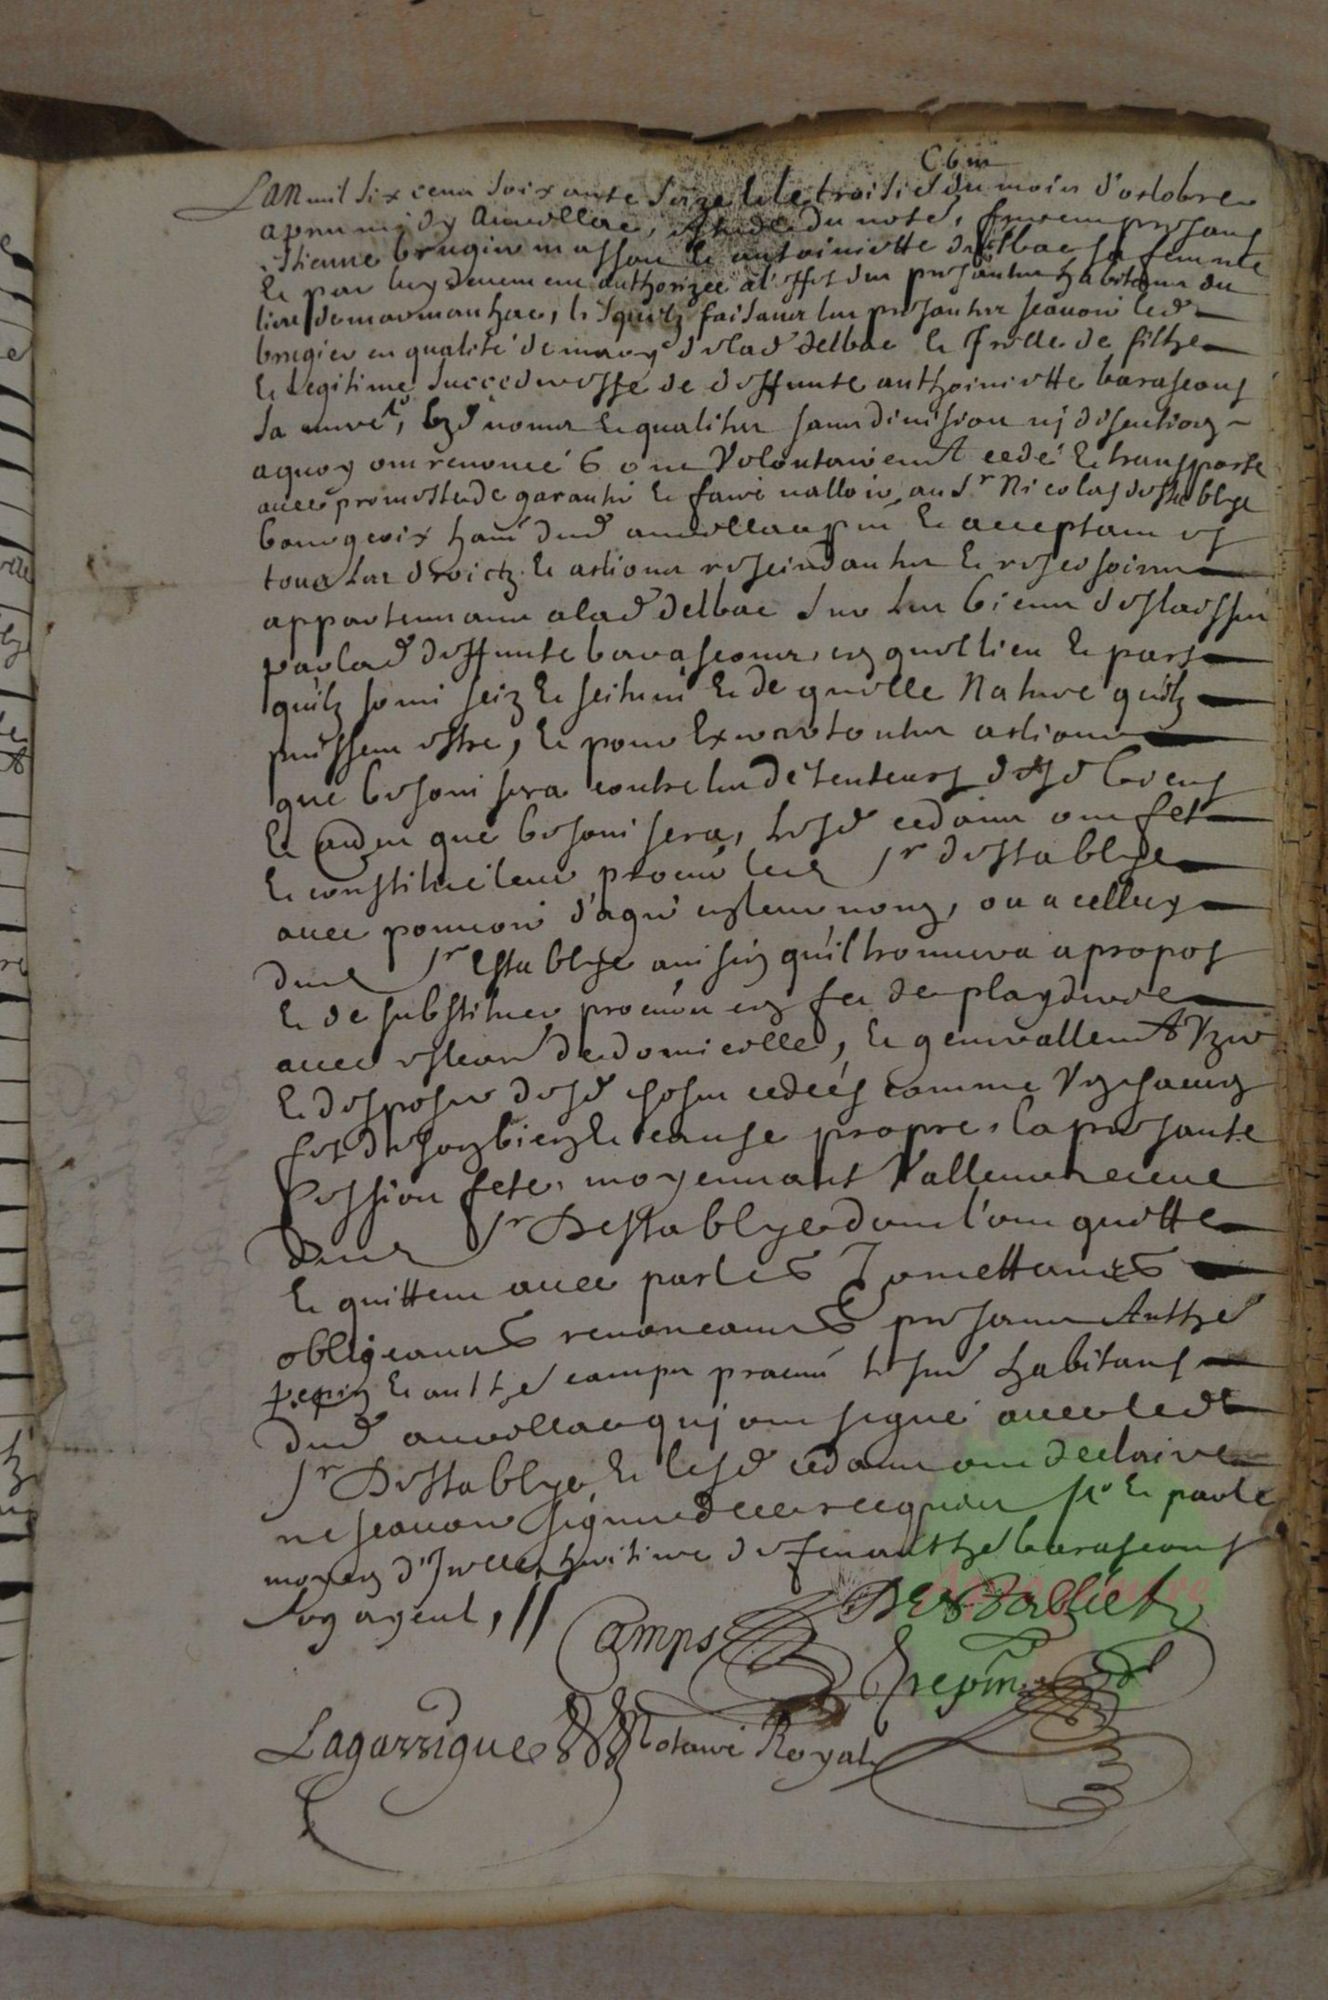 C6m
Lan mil six cens soixante seize & le troisie du mois d'octobre
apres midy Aurillac, estude du not, furent presans
Estienne brugier masson & anthoiniette delbac sa femme
& par luy deuement authorizée a l'effet des presantes habitans du
lieu de marmanhac, lesquelz faisans les presantes scauoir led
brugier en qualité de mary de lad delbac & Icelle de filhe
& legitime succederesse de deffunte anthoiniette barascous
sa mere, ezd noms & qualites sans diuision ny discution
aquoy ont renoncé ont Volontairement cedé & transporté
auec promesse de garantir & faire valloir au Sr Nicolas destablye
bourgeoix hant dud aurillac pnt & acceptant
tous les droictz & actions rescindantes & rescisoires
appartenans a lad delbac sur les biens deslaisses
par lad deffunte barascous, en quel lieu & part
quilz soint seiz & scitues & de quelle Nature quilz
puissent estre, & pour Exercer toutes actions
que besoin sera contre les détenteurs desd biens
& que besoin sera, lesd cedans ont fet
& constitué leur procur led Sr destablye
auec pouuoir d'agir en leur nom, ou a celluy
dud Sr Establye ainsin quil trouuera a propos
& de substituer procur en fet de playderie
auec eslection de domicille, & generallement Vzer
& disposer desd choses cedées comme Vn chacun
fet de son bien & cause propre, la presante
Cession fete, moyennant Valleur receue
dud Sr Destablye dont l'ont quitte
& quittent auec pacte Sometans
obligeans renonceans presans Anthe
trepin & anthe camps praticn habitans
dud aurillac qui ont signé auec led
Sr Destablye, & lesd cedans ont declaire
ne scauoir signer de ce requis & par le
moyen d'Icelle, heritiere de feu anthe barascous
Soy agent, //
Camps
Destabliet
Trepin
Lagarrigue Notaire Royal